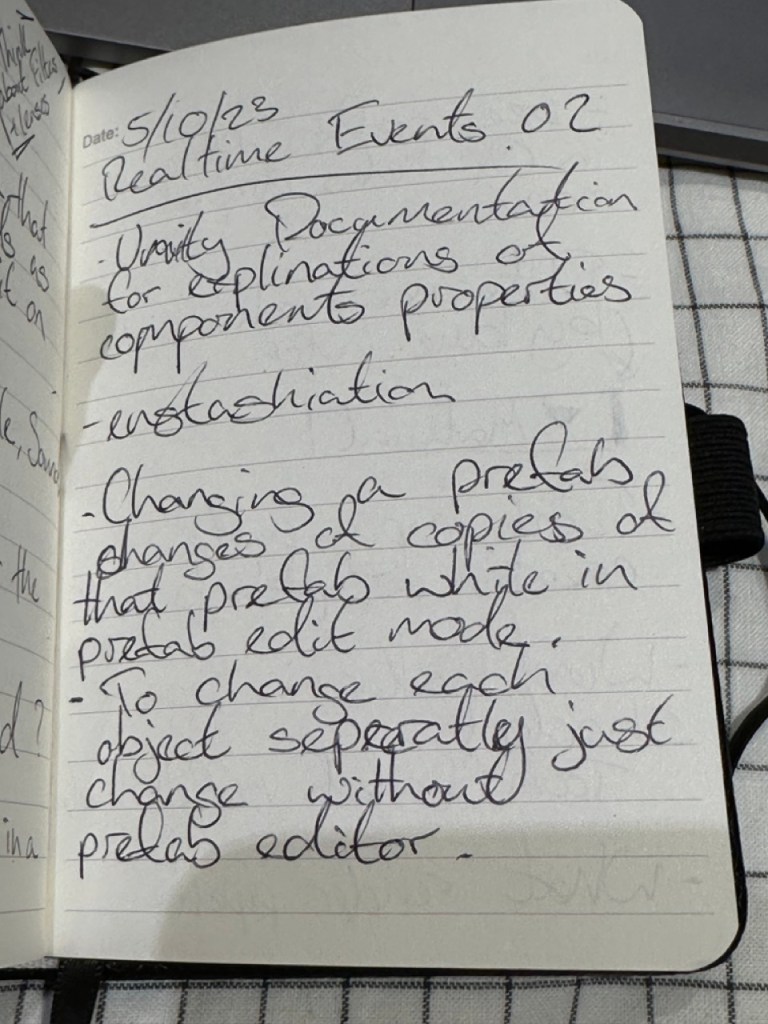 Think
about Filters
/Lenses
that
as
it on
the
d?
in a
Date: 5/10/23
Realtime Events 02
- Unity Documentation
for explinations of
components properties
- enstashiation
- Changing a prefab
changes of copies of
that prefab while in
prefab edit mode.
- To change each
object seperatly just
change without
prefab editor.